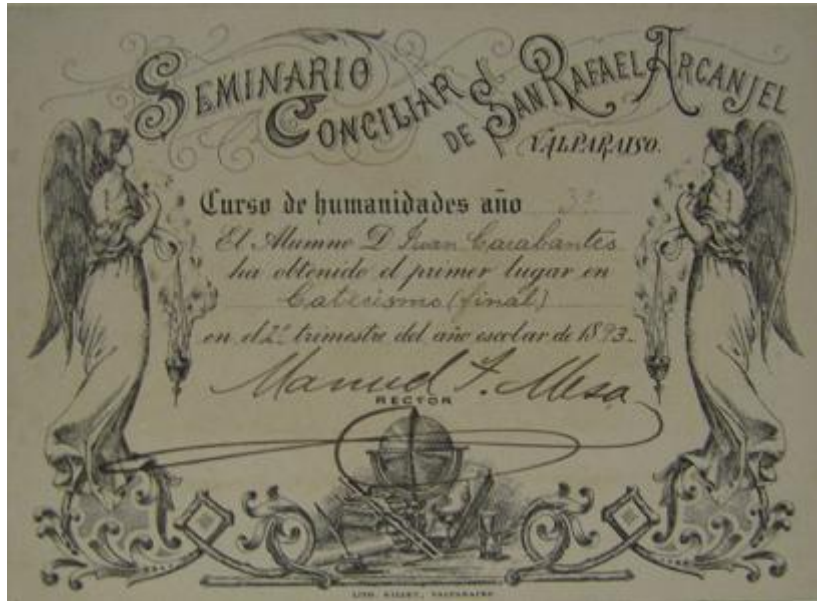 SEMINARIO
CONCILIAR
DE SAN RAFAEL ARCANJEL
VALPARAISO.
Curso de humanidades año 3º
El Alumno D Juan Carabantes
ha obtenido el primer lugar en
Catecismo (final)
en el 2º trimestre del año escolar de 1893.
Manuel F. Mesa
RECTOR
LITO. GILLET, VALPARAISO